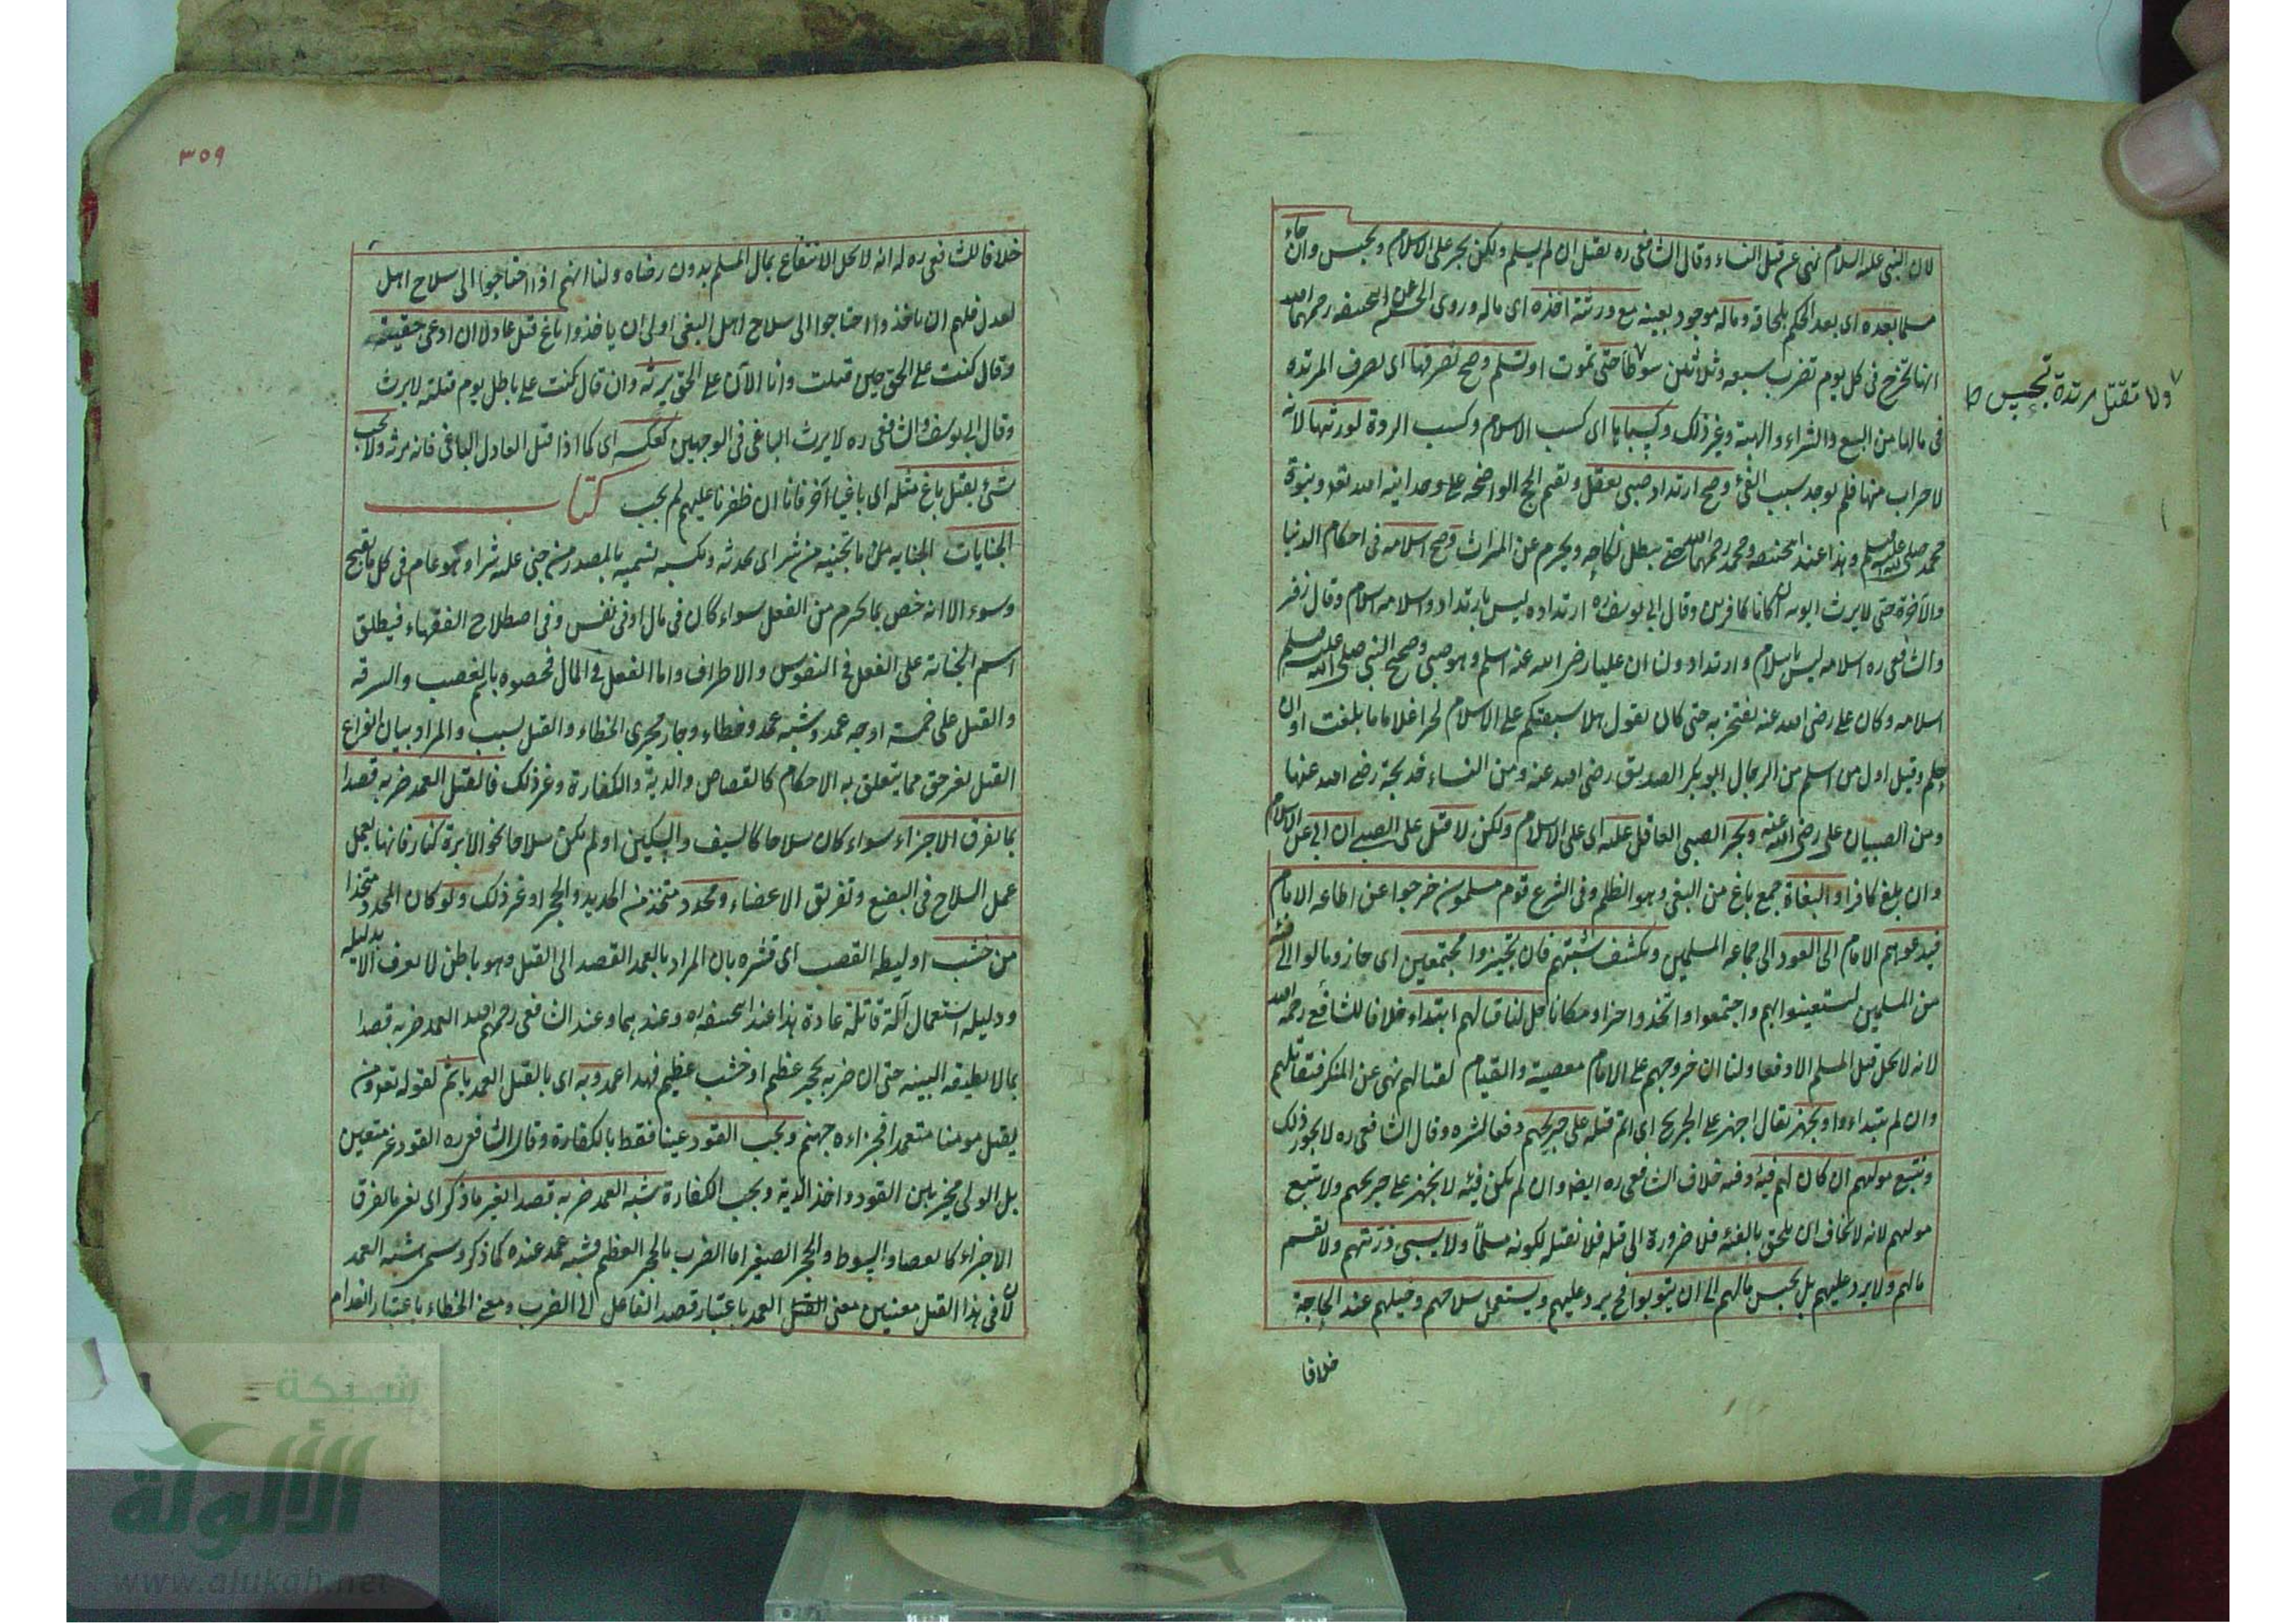 لان النبي عليه السلام نهى عن قتل النساء وقال الشافعي ره يقتل ان لم يسلم ولكن يجبر على الاسلام ويحبس وان جاء
مسلما بعده اى بعد الحكم بلحاقه وماله موجود بعينه مع ورثته اخذه اى ماله وروى الحسن عن ابيحنيفه رحمهما الله
انها تخرج فى كل يوم تضرب سبعه وثلاثين سوطا حتى تموت او تسلم وصح تصرفها اى تصرف المرتده
فى مالها من البيع والشراء والهبة وغير ذلك وكسباها اى كسب الاسلام وكسب الردة لورثتها لانه
لا حراب منها فلم يوجد سبب الفئ وصح ارتداد صبى يعقل ويقيم الحج الواضحه على وحدانيه الله تعه وبنوة
محمد صلى الله عليه وسلم وهذا عند ابيحنيفه ومحمد رحمهما الله حتى يبطل نكاحه ويحرم عن الميراث وصح اسلامه فى احكام الدنيا
والآخرة حتى لا يرث ابويه ان كانا كافرين وقال ابى يوسف ره ارتداده ليس بارتداد واسلامه اسلام وقال زفر
والشافعى ره اسلامه ليس باسلام وارتداد ولنا ان عليا رضى الله عنه اسلم وهو صبى وصحح النبي صلى الله عليه وسلم
اسلامه وكان على رضى الله عنه يفتخر به حتى كان يقول هلا سبقتكم على الاسلام لحرا غلاما ما بلغت اوان
حلم وقيل اول من اسلم من الرجال ابو بكر الصديق رضى الله عنه ومن النساء خديجة رضى الله عنها
ومن الصبيان على رضى الله عنه ويجبر الصبى العاقل عليه اى على الاسلام ولكن لا قتل على الصبى ان ابى عن الاسلام
وان بلغ كافرا والبغاة جمع باغ من البغى وهو الظلم وفى الشرع قوم مسلمون خرجوا عن اطاعه الامام
فيدعوهم الامام الى العود الى جماعه المسلمين ويكشف شبتهم فان تحيزوا مجتمعين اى حاز ومالوا الى فئة
من المسلمين ليستعينوا بهم واجتمعوا واتخذوا حزا ومكانا حل لنا قتالهم ابتداء خلافا للشافعى رحمه الله
لانه لا يحل قتل المسلم الا دفعا ولنا ان خروجهم على الامام معصية والقيام لقتالهم نهى عن المنكر فتقاتلهم
وان لم يبتداءوا ويجهز يقال اجهز على الجريح اى اتم قتله على جريحهم دفعا لشره وقال الشافعى ره لا يجوز ذلك
ونتبع موليهم ان كان لهم فيئه وفيه خلاف الشافعى ره ايضا وان لم يكن فيئه لا نجهز على جريحهم ولا نتبع
موليهم لانه لا يخاف ان يلحق بالفئه فلا ضرورة الى قتله فلا نقتله لكونه مسلما ولا يسبى ذريتهم ولا نقسم
مالهم ولا يرد عليهم بل يحبس مالهم الى ان يتوبوا فح يرد عليهم ويستعمل سلاحهم وخيلهم عند الحاجة
خلافا
ولا تقتل مرتدة تحبس ط
٣٥٩
خلافا للشافعى ره له انه لا يحل الانتفاع بمال المسلم بدون رضاه ولنا انهم اذا احتاجوا الى سلاح اهل
لعدل فلهم ان ياخذوا احتاجوا الى سلاح اهل البغى اولى ان ياخذوا باغ قتل عادلا ان ادعى حقيته
وقال كنت على الحق حين قتلت وانا الآن على الحق يرثه وان قال كنت على باطل يوم قتلته لا يرث
وقال ابى يوسف والشافعى ره لا يرث الباغى فى الوجهين كعكسه اى كما اذا قتل العادل الباغى فانه يرثه ولا يجب
شئ بقتل باغ مثله اى باغيا آخر فانا ان ظفرنا عليهم لم يجب كتاب
الجنايات الجنايه من ما تجنيه من شر اى تحدثه وتكسبه تسميه بالمصدر من جنى عليه شرا وهو عام فى كل ما يقبح
وسوء الا انه خص بما يحرم من الفعل سواء كان فى مال او فى نفس وفى اصطلاح الفقهاء فيطلق
اسم الجناية على الفعل فى النفوس والاطراف واما الفعل فى المال فخصوه باسم الغصب والسرقه
والقتل على خمسة اوجه عمد وشبه عمد وخطاء وجار مجرى الخطاء والقتل بسبب والمراد بيان انواع
القتل بغير حق مما يتعلق به الاحكام كالقصاص والدية والكفارة وغير ذلك فالقتل العمد ضربه قصدا
بما يفرق الاجزاء سواء كان سلاحا كالسيف والسكين او لم يكن سلاحا نحو الابرة كنار فانها يعمل
عمل السلاح فى البضع وتفريق الاعضاء ومحدد متخذ من الحديد والحجر او غير ذلك ولو كان المحدد متخذا
من خشب او ليطه القصب اى قشره بان المراد بالعمد القصد الى القتل وهو باطن لا يعرف الا بدليله
ودليله استعمال آلة قاتلة عادة هذا عند ابيحنيفه ره وعندهما وعند الشافعى رحمهم الله العمد ضربه قصدا
بما لا يطيقه البنيه حتى ان ضربه بحجر عظيم او خشب عظيم فهذا عمد وبه اى بالقتل العمد ياثم لقوله تعه ومن
يقتل مومنا متعمدا فجزاءه جهنم ويجب القود عينا فقط بالكفارة وقال الشافعى ره القود غير متعين
بل الولى مخير بين القود واخذ الدية ويجب الكفارة شبه العمد ضربه قصدا بغير ما ذكر اى بغير ما يفرق
الاجزاء كالعصا والسوط والحجر الصغير اما الضرب بالحجر العظيم فشبه عمد عنده كما ذكر وسمى شبه العمد
لان فى هذا القتل معنيين معنى القتل العمد باعتبار قصد الفاعل الى الضرب ومعنى الخطاء باعتبار انعدام
شبكة
الألوكة
www.alukah.net